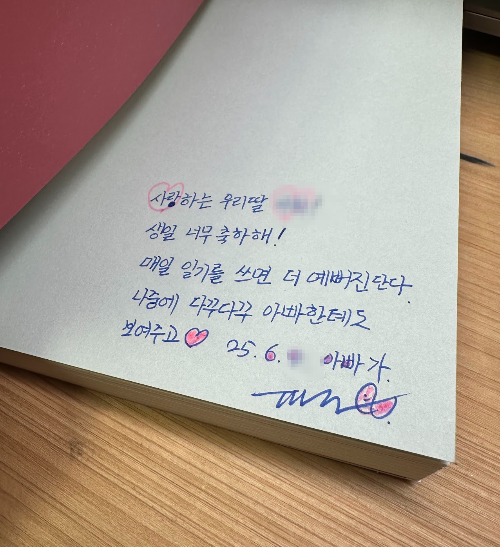 사랑하는 우리딸
생일 너무 축하해!
매일 일기를 쓰면 더 예뻐진단다.
나중에 다꾸다꾸 아빠한테도
보여주고 ♥ 25. 6. 아빠가.